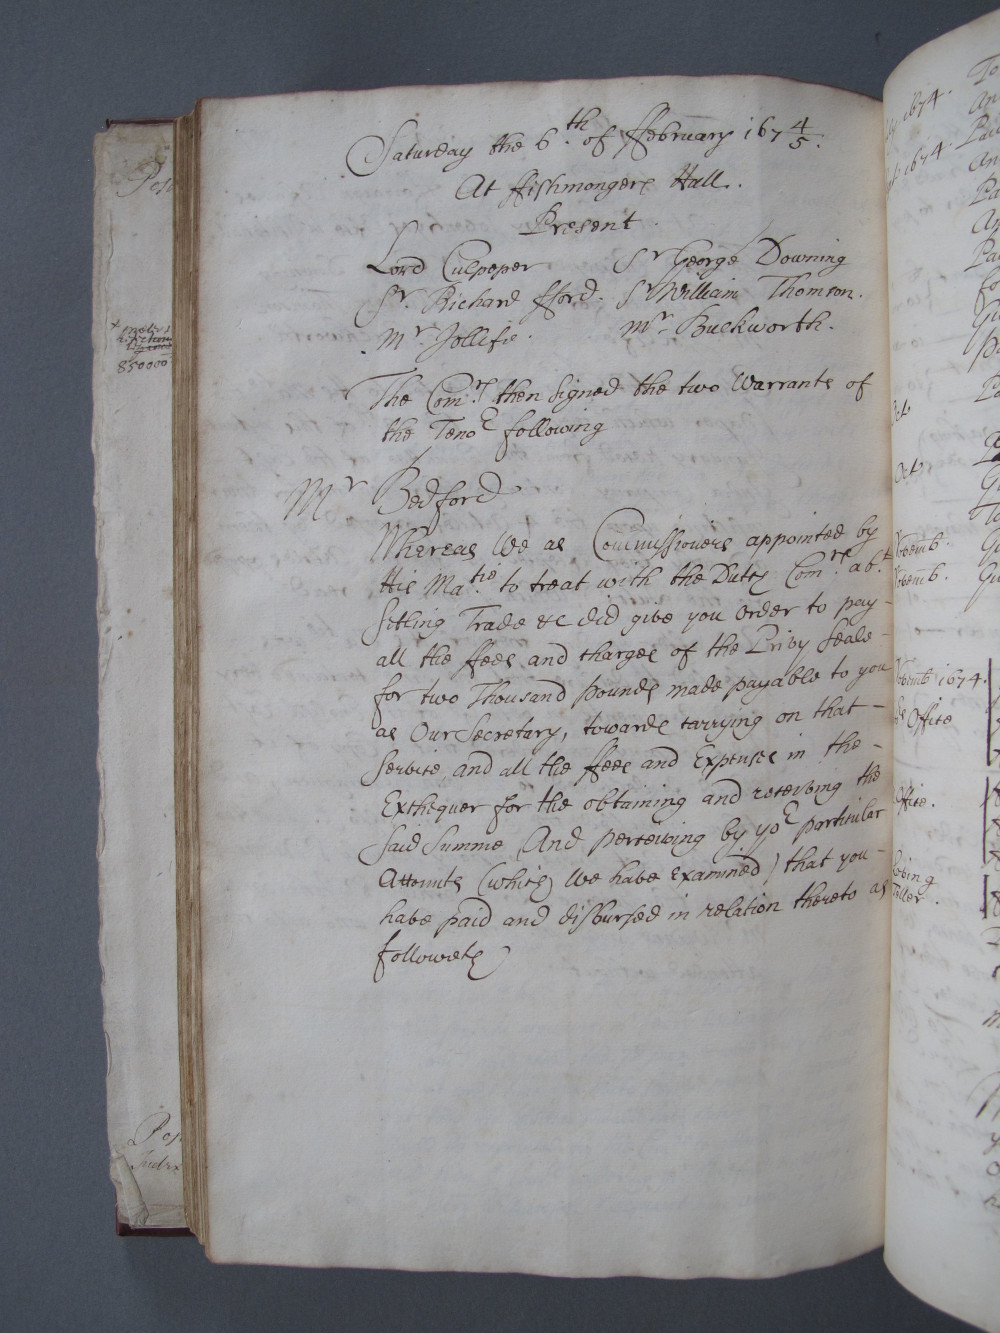 Saturday the 6.th of ffebruary 167 4/5.
At ffishmongers Hall.
Present
Lord Culpeper Sr George Downing
Sr. Richard fford. Sr William Thomson.
Mr. Jollife. Mr. Buckworth.
The Comrs. then signed the two Warrants of
the Tenor following
Mr Bedford
Whereas We as Commissioners appointed by
His Ma.tie to treat with the Dutch Com.rs ab.t
Setling Trade &c did give you order to pay-
all the ffees and charges of the Privy Seale-
for two Thousand pounds made payable to you
as Our Secretary, towards carrying on that-
Service and all the ffees and Expenses in the-
Exchequer for the obtaining and receiving the
said Summe And perceiving by yor particular
Accounts (which We have Examined) that you-
have paid and disbursed in relation thereto as
followeth
850000
Index
1674.
1674.
Oct
Oct
Novemb.
Novemb.
Novemb 1674.
Office
Office.
Teller.